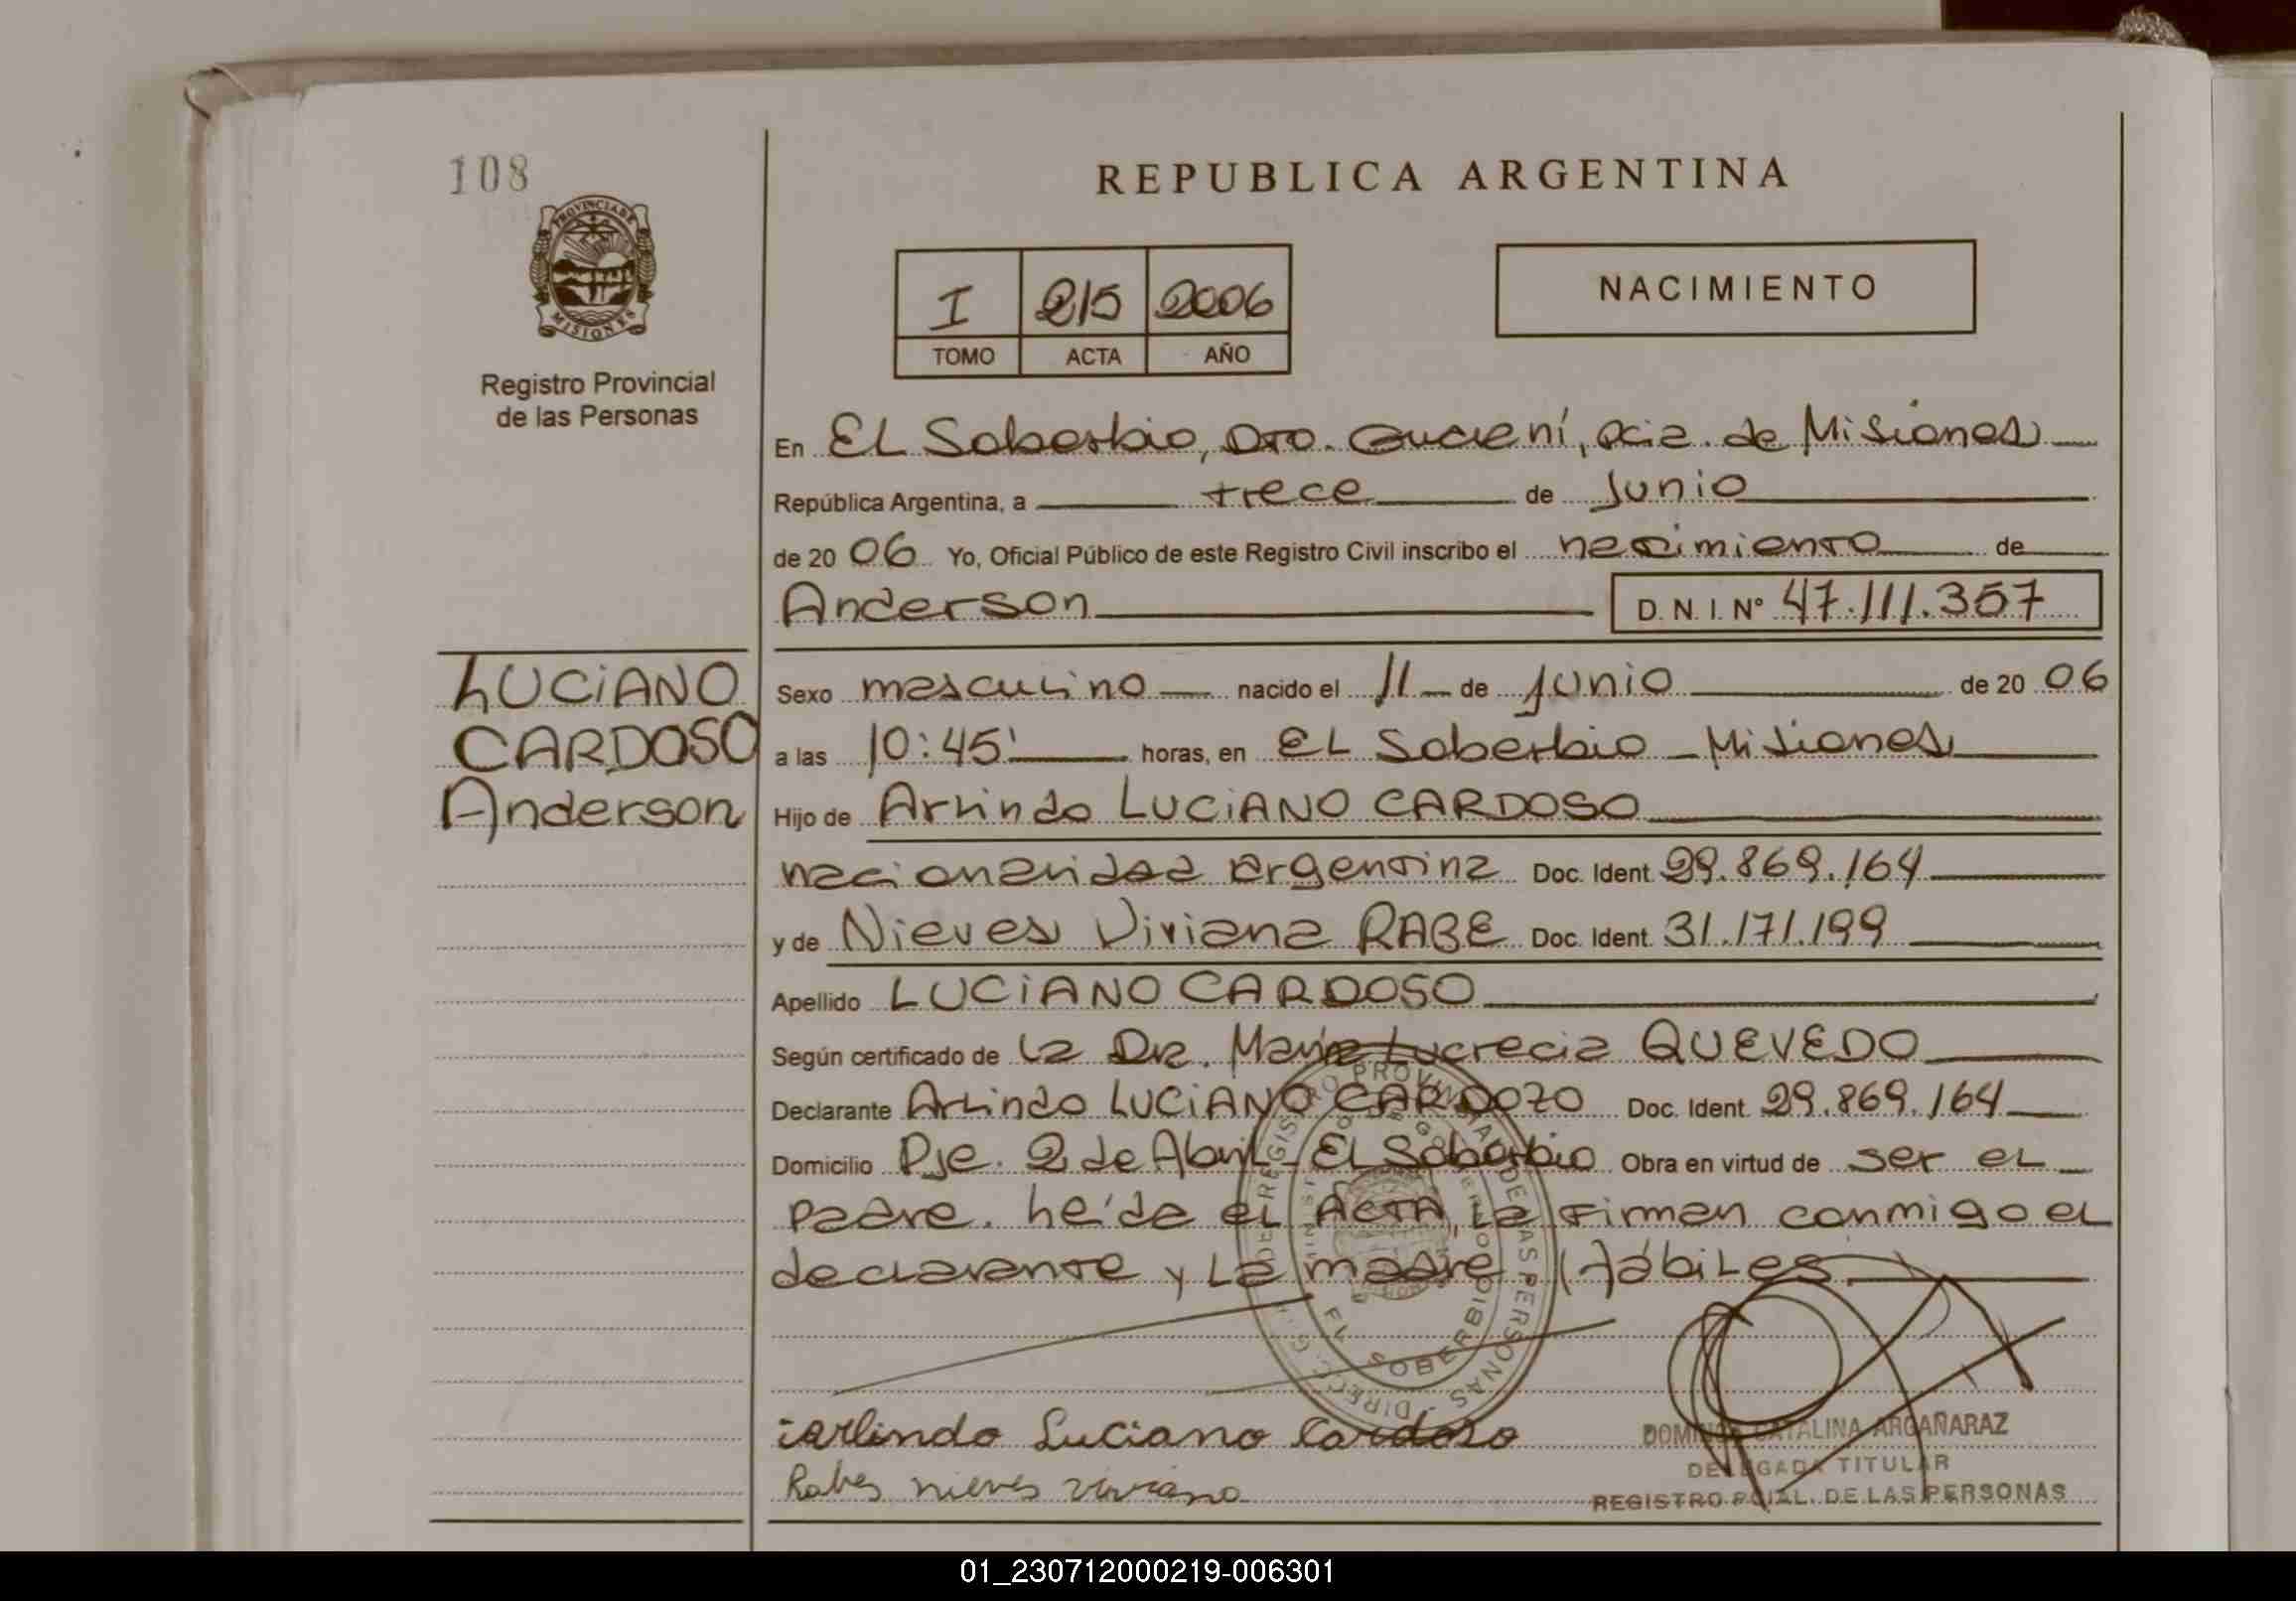 108
PROVINCIA DE
MISIONES
Registro Provincial
de las Personas
REPUBLICA ARGENTINA
I 215 2006
TOMO ACTA AÑO
NACIMIENTO
En EL Soberbio, Dto. Guaraní, Pcia. de Misiones
República Argentina, a trece de Junio
de 20 06 Yo, Oficial Público de este Registro Civil inscribo el nacimiento de
Anderson D. N. I. Nº 47.111.357
LUCIANO
CARDOSO
Anderson
Sexo masculino nacido el 11 de Junio de 20 06
a las 10:45' horas, en EL Soberbio - Misiones
Hijo de Arlindo LUCIANO CARDOSO
nacionalidad argentina Doc. Ident. 29.869.164
y de Nieves Viviana RABE Doc. Ident. 31.171.199
Apellido LUCIANO CARDOSO
Según certificado de La Dra. María Lucrecia QUEVEDO
Declarante Arlindo LUCIANO CARDOZO Doc. Ident. 29.869.164
Domicilio Pje. 2 de Abril - EL Soberbio Obra en virtud de ser eL
padre. Leída el ACTA, La Firman conmigo eL
declarante y La madre Hábiles
EL SOBERBIO
Arlindo Luciano Cardozo
Rabes nieves viviana
CATALINA ARGAÑARAZ
DELEGADA TITULAR
REGISTRO PCIAL. DE LAS PERSONAS
01_230712000219-006301